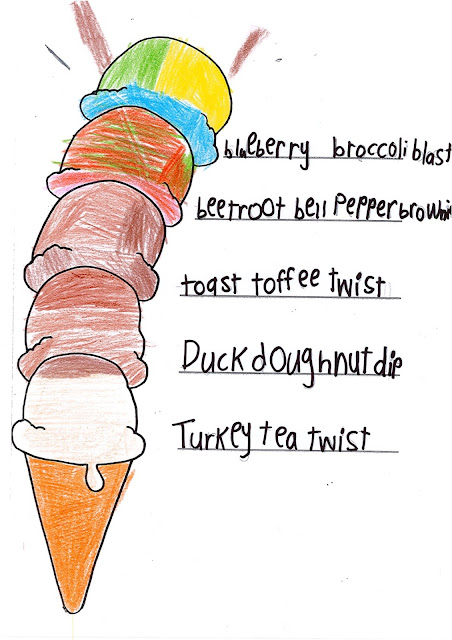 blueberry broccoli blast
beetroot bell Pepper brownie
toast toffee twist
Duck doughnut dip
Turkey tea twist